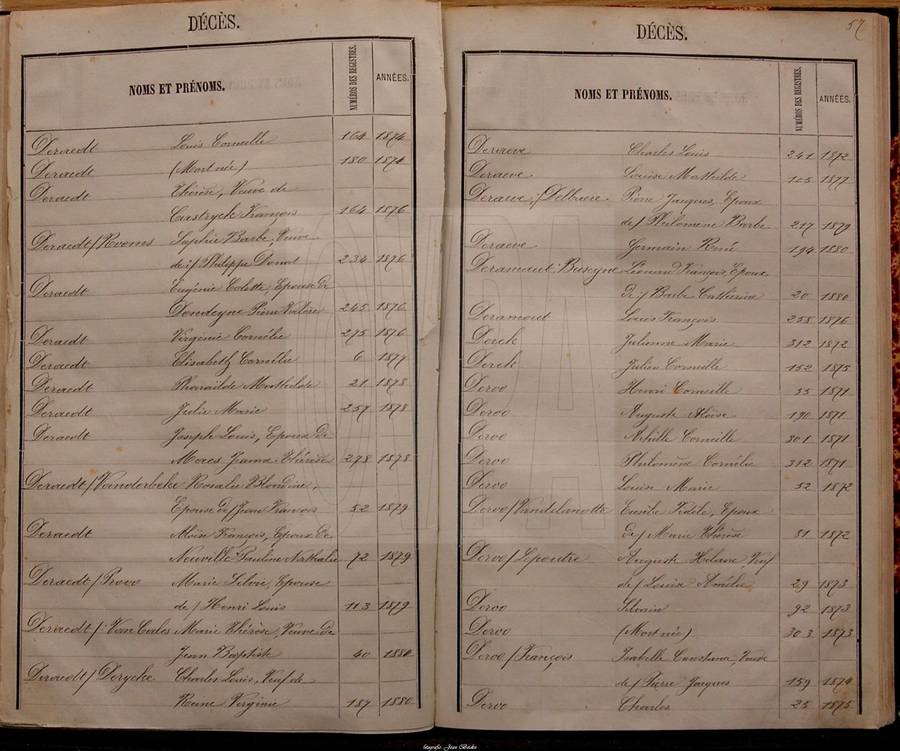 DÉCÈS.
NOMS ET PRÉNOMS. NUMÉROS DES REGISTRES. ANNÉES.
Deraedt Louis Corneille 164 1874
Deraedt (Mort née) 180 1874
Deraedt Thérèse, Veuve de
Castryck François 164 1876
Deraedt/Rooms Sophie Barbe, Veuve
de/ Philippe Donat 234 1876
Deraedt Eugénie Colette, Epouse de
Dondeyne Pierre 245 1876
Deraedt Virginie Cornélie 275 1876
Deraedt Elisabeth Cornélie 6 1877
Deraedt Pharaïlde Mathilde 21 1878
Deraedt Julie Marie 257 1878
Deraedt Joseph Louis, Epoux de
Maes Jeanne Thérèse 278 1878
Deraedt/Vanderbeke Rosalie Blondine,
Epouse de/ Jean François 52 1879
Deraedt Aloïse François, Epoux de
Neuville Pauline Nathalie 72 1879
Deraedt/Provo Marie Silvie, Epouse
de/ Henri Louis 113 1879
Deraedt/ Marie Thérèse, Veuve de
Jean Baptiste 40 1880
Deraedt/Derycke Charles Louis, Veuf de
Reine Virginie 187 1880
57
DÉCÈS.
NOMS ET PRÉNOMS. NUMÉROS DES REGISTRES. ANNÉES.
Deraeve Charles Louis 241 1872
Deraeve Louise Mathilde 1877
Deraeve/Delbaere Pierre Jacques, Epoux
de/ Philomène Barbe 217 1879
Deraeve Germain René 194 1880
Deramout Buseyne Léonard François, Epoux
de/ Barbe Catherine 20 1880
Deramout Louis François 258 1876
Derck Julienne Marie 312 1872
Derck Julie Corneille 152 1875
Deroo Henri Corneille 55 1871
Deroo Auguste Aloïse 190 1871
Deroo Achille Corneille 301 1871
Deroo Philomène Cornélie 312 1871
Deroo Louise Marie 52 1872
Deroo/Vandelanotte Eusèbe Fidèle, Epoux
de/ Marie Thérèse 81 1872
Deroo/Lepoutre Auguste Hilaire, Veuf
de/ Louise Amélie 29 1873
Deroo Silvain 92 1873
Deroo (Mort née) 303 1873
Deroo/François Isabelle Constance, Veuve
de/ Pierre Jacques 159 1874
Deroo Charles 25 1875